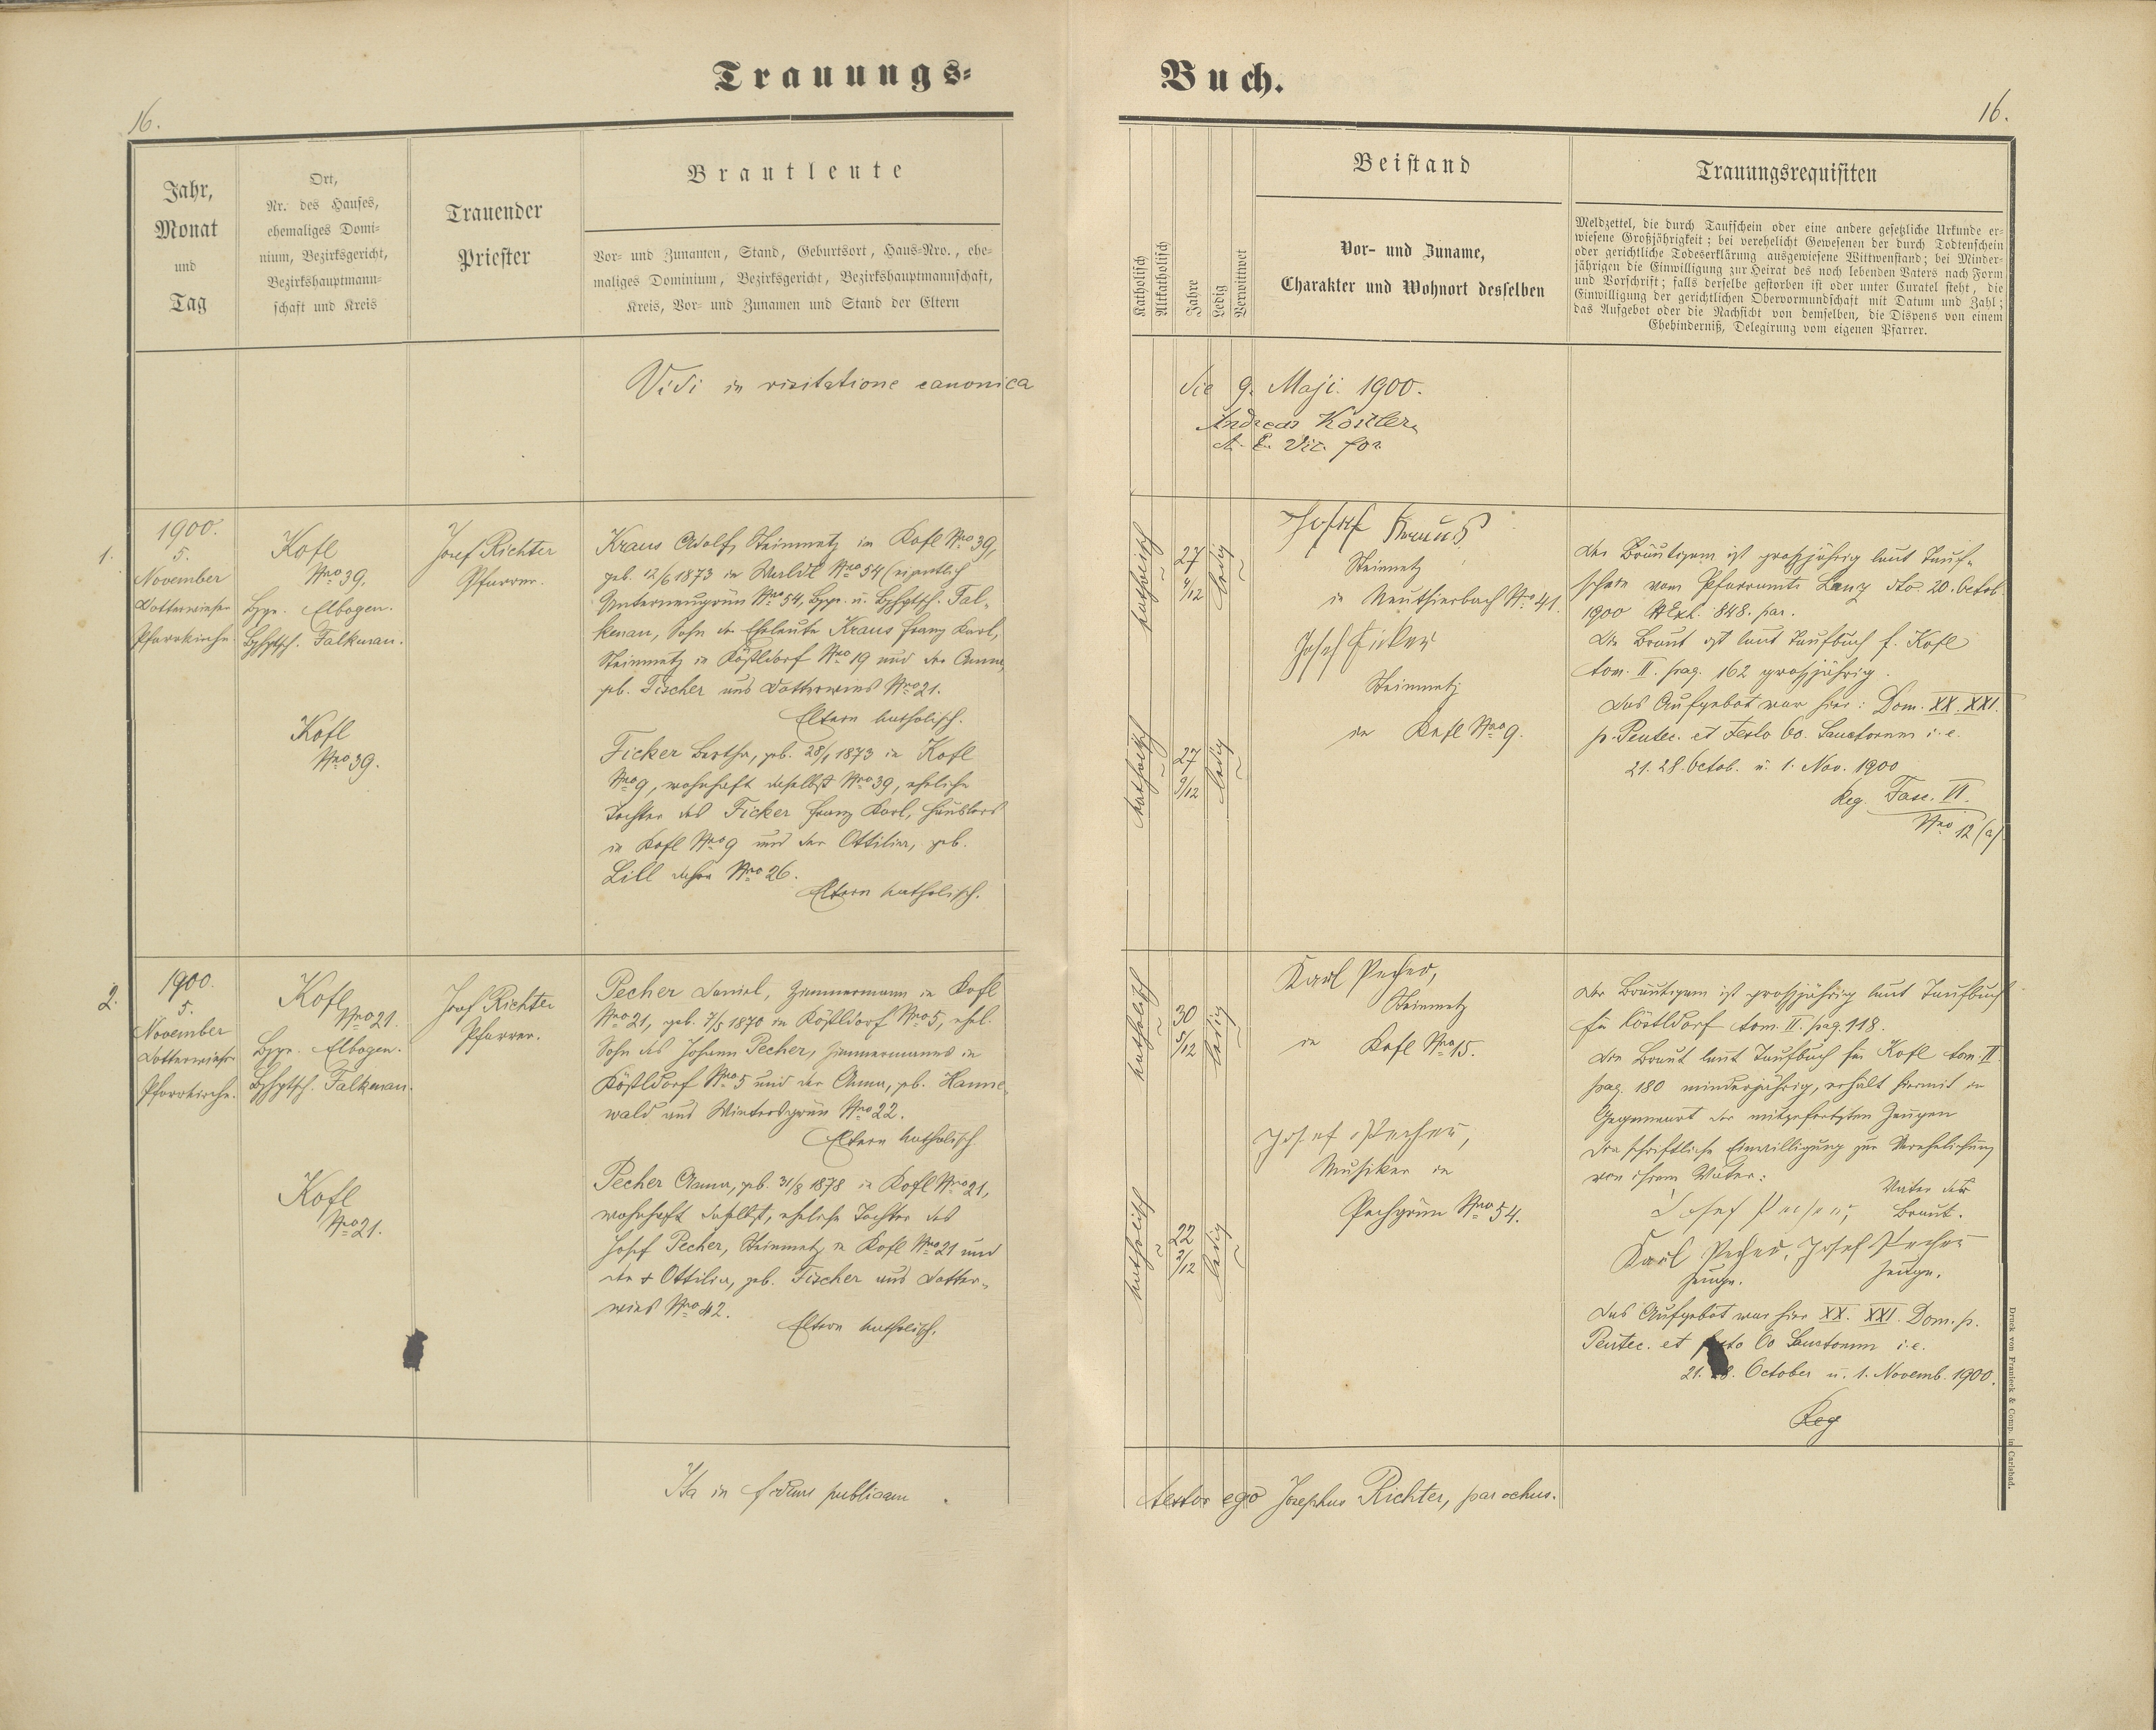 Trauungs-
Buch.
16.
16.
Jahr,
Monat
und
Tag
Ort,
Nr. des Hauses,
ehemaliges Domi-
nium, Bezirksgericht,
Bezirkshauptmann-
schaft und Kreis
Trauender
Priester
Brautleute
Vor- und Zunamen, Stand, Geburtsort, Haus-Nro., ehe-
maliges Dominium, Bezirksgericht, Bezirkshauptmannschaft,
Kreis, Vor- und Zunamen und Stand der Eltern
Katholisch
Altkatholisch
Jahre
Ledig
Verwittwet
Beistand
Vor- und Zuname,
Charakter und Wohnort desselben
Trauungsrequisiten
Meldzettel, die durch Taufschein oder eine andere gesetzliche Urkunde er-
wiesene Großjährigkeit; bei verehelicht Gewesenen der durch Todtenschein
oder gerichtliche Todeserklärung ausgewiesene Wittwenstand; bei Minder-
jährigen die Einwilligung zur Heirat des noch lebenden Vaters nach Form
und Vorschrift; falls derselbe gestorben ist oder unter Curatel steht, die
Einwilligung der gerichtlichen Obervormundschaft mit Datum und Zahl;
das Aufgebot oder die Nachsicht von demselben, die Dispens von einem
Ehehinderniß, Delegirung vom eigenen Pfarrer.
Vidi in visitatione canonica
die 9. Maji. 1900.
Andreas Köstler,
Vic. for.
1.
1900.
5.
November
Dotterwieser
Pfarrkirche.
Kofl
Nro 39.
Bzg. Elbogen.
Bzhptsch. Falkenau.
Kofl
Nro 39.
Josef Richter
Pfarrer.
Kraus Adolf, Steinmetz in Kofl Nro 39,
geb. 12/6 1873 in Werldt Nro 54 (eigentlich
Unterneugrün Nro 54, Bzg. u. Bzhptsch. Fal-
kenau, Sohn der Eheleute Kraus Franz Karl,
Steinmetz in Köstldorf Nro 19 und der Anna,
geb. Fischer aus Dotterwies Nro 21.
Eltern katholisch.
Ficker Bertha, geb. 28/1 1873 in Kofl
Nro 9, wohnhaft daselbst Nro 39, eheliche
Tochter des Ficker Franz Karl, Häuslers
in Kofl Nro 9 und der Ottilia, geb.
Lill daher Nro 26.
Eltern katholisch.
katholisch
27
4/12
ledig
katholisch
27
9/12
ledig
Josef Kraus
Steinmetz
in Neuthierbach Nro 41.
Josef Ficker
Steinmetz
in Kofl Nro 9.
Der Bräutigam ist großjährig laut Tauf-
schein vom Pfarramte Lanz dto 20. Octob.
1900 NExh. 848. par.
Die Braut ist laut Taufbuch f. Kofl
tom. II. pag. 162 großjährig.
Das Aufgebot war hier: Dom. XX. XXI.
p. Pentec. et Festo Oo. Sanctorum i. e.
21. 28. Octob. u. 1. Nov. 1900
Reg. Fasc. VI.
Nro 12 (a)
2.
1900.
5.
November
Dotterwieser
Pfarrkirche.
Kofl
Nro 21.
Bzg. Elbogen.
Bzhptsch. Falkenau.
Kofl
Nro 21.
Josef Richter
Pfarrer.
Pecher Daniel, Zimmermann in Kofl
Nro 21, geb. 7/5 1870 in Köstldorf Nro 5, ehel.
Sohn des Johann Pecher, Zimmermanns in
Köstldorf Nro 5 und der Anna, geb. Hanne-
wald aus Wintersgrün Nro 22.
Eltern katholisch
Pecher Anna, geb. 31/8 1878 in Kofl Nro 21,
wohnhaft daselbst, eheliche Tochter des
Josef Pecher, Steinmetz in Kofl Nro 21 und
der + Ottilia, geb. Fischer aus Dotter-
wies Nro 42.
Eltern katholisch.
katholisch
30
5/12
ledig
katholisch
22
2/12
ledig
Karl Pecher,
Steinmetz
in Kofl Nro 15.
Josef Pecher,
Musiker in
Pechgrün Nro 54.
Der Bräutigam ist großjährig laut Taufbuch
für Köstldorf tom. II. pag. 118.
Die Braut laut Taufbuch für Kofl tom. II.
pag. 180 minderjährig, erhält hiermit in
Gegenwart der mitgefertigten Zeugen
die schriftliche Einwilligung zur Verehelichung
von ihrem Vater:
Josef Pecher, Vater der
Braut.
Karl Pecher, Josef Pecher
Zeuge. Zeuge.
Das Aufgebot war hier XX. XXI. Dom. p.
Pentec. et festo Oo Sanctorum i. e.
21. 28. October u. 1. Novemb. 1900.
Reg
Ita in fidem publicam
testor ego Josephus Richter, parochus.
Druck von Franieck & Comp. in Carlsbad.